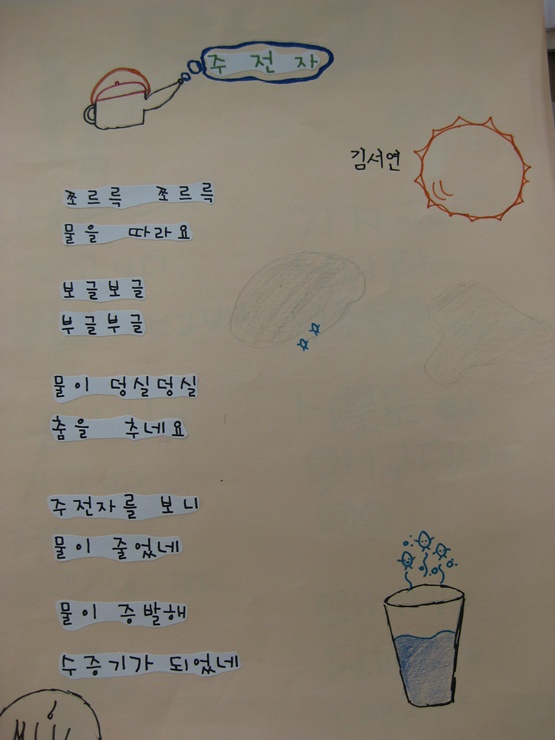 주전자
김서연
쪼르륵 쪼르륵
물을 따라요
보글보글
부글부글
물이 덩실덩실
춤을 추네요
주전자를 보니
물이 줄었네
물이 증발해
수증기가 되었네